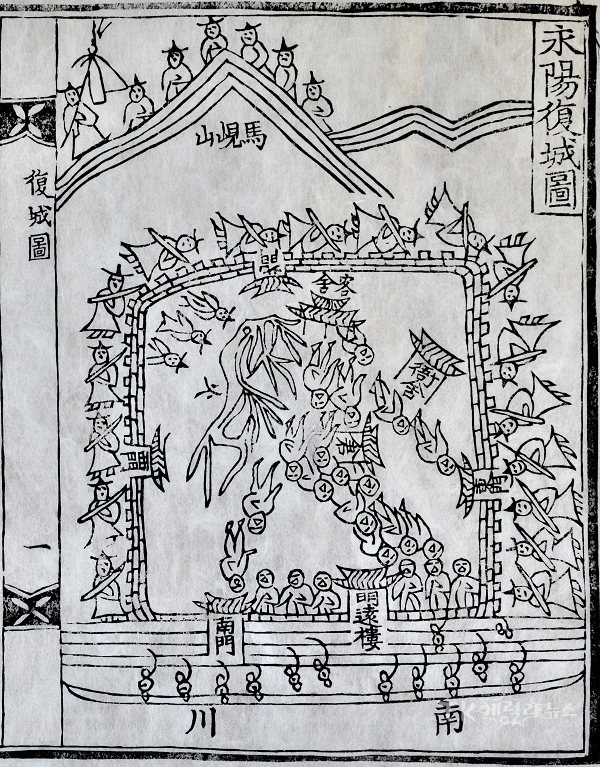 永陽復城圖
馬峴山
客舍
衙舍
東門
西門
明遠樓
南門
南川
復城圖
一